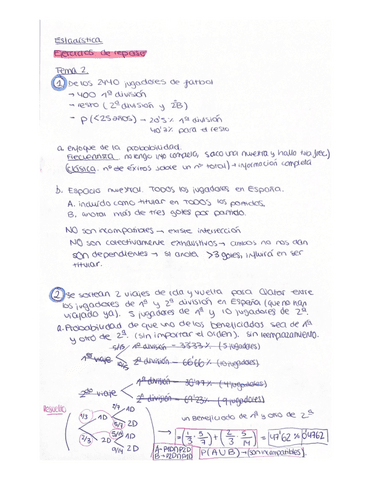 Estadística
Ejercicios de repaso
Tema 2.
① De los 2440 jugadores de fútbol
→ 400 1ª división
→ resto (2ª división y 2B)
→ P(<25 años) → 20'5% 1ª división
40'2% para el resto
a. Enfoque de la probabilidad.
Frecuentista no tengo info completa, saco una muestra y hallo
Clásica. nº de éxitos sobre un nº total → información completa
b. Espacio muestral. TODOS los jugadores en España.
A. incluido como titular en TODOS los partidos.
B. anotar más de tres goles por partido.
NO son incompatibles → existe intersección
NO son colectivamente exhaustivos → ambos no nos dan
SON dependientes → si anota >3 goles, influirá en ser
titular.
② Se sortean 2 viajes de ida y vuelta para Qatar entre
los jugadores de 1ª y 2ª división en España (que no han
viajado ya). 5 jugadores de 1ª y 10 jugadores de 2ª.
a. Probabilidad de que uno de los beneficiados sea de 1ª
y otro de 2ª. (sin importar el orden). Sin reemplazamiento.
5/15 1ª división = 33'33% (5 jugadores)
1er viaje
2ª división = 66'66% (10 jugadores)
1ª división
2do viaje (4 jugadores)
2ª división = 69'23% (9 jugadores)
1/3 1D 2/7 1D
5/7 2D
2/3 2D 5/14 1D
9/14 2D
un beneficiado de 1ª y otro de 2ª
= (1/3 · 5/7) + (2/3 · 5/14) = 47'62% ≈ 0'4762
A = P1D∩P2D
B = P2D∩P1D
P(A∪B) → son incompatibles.